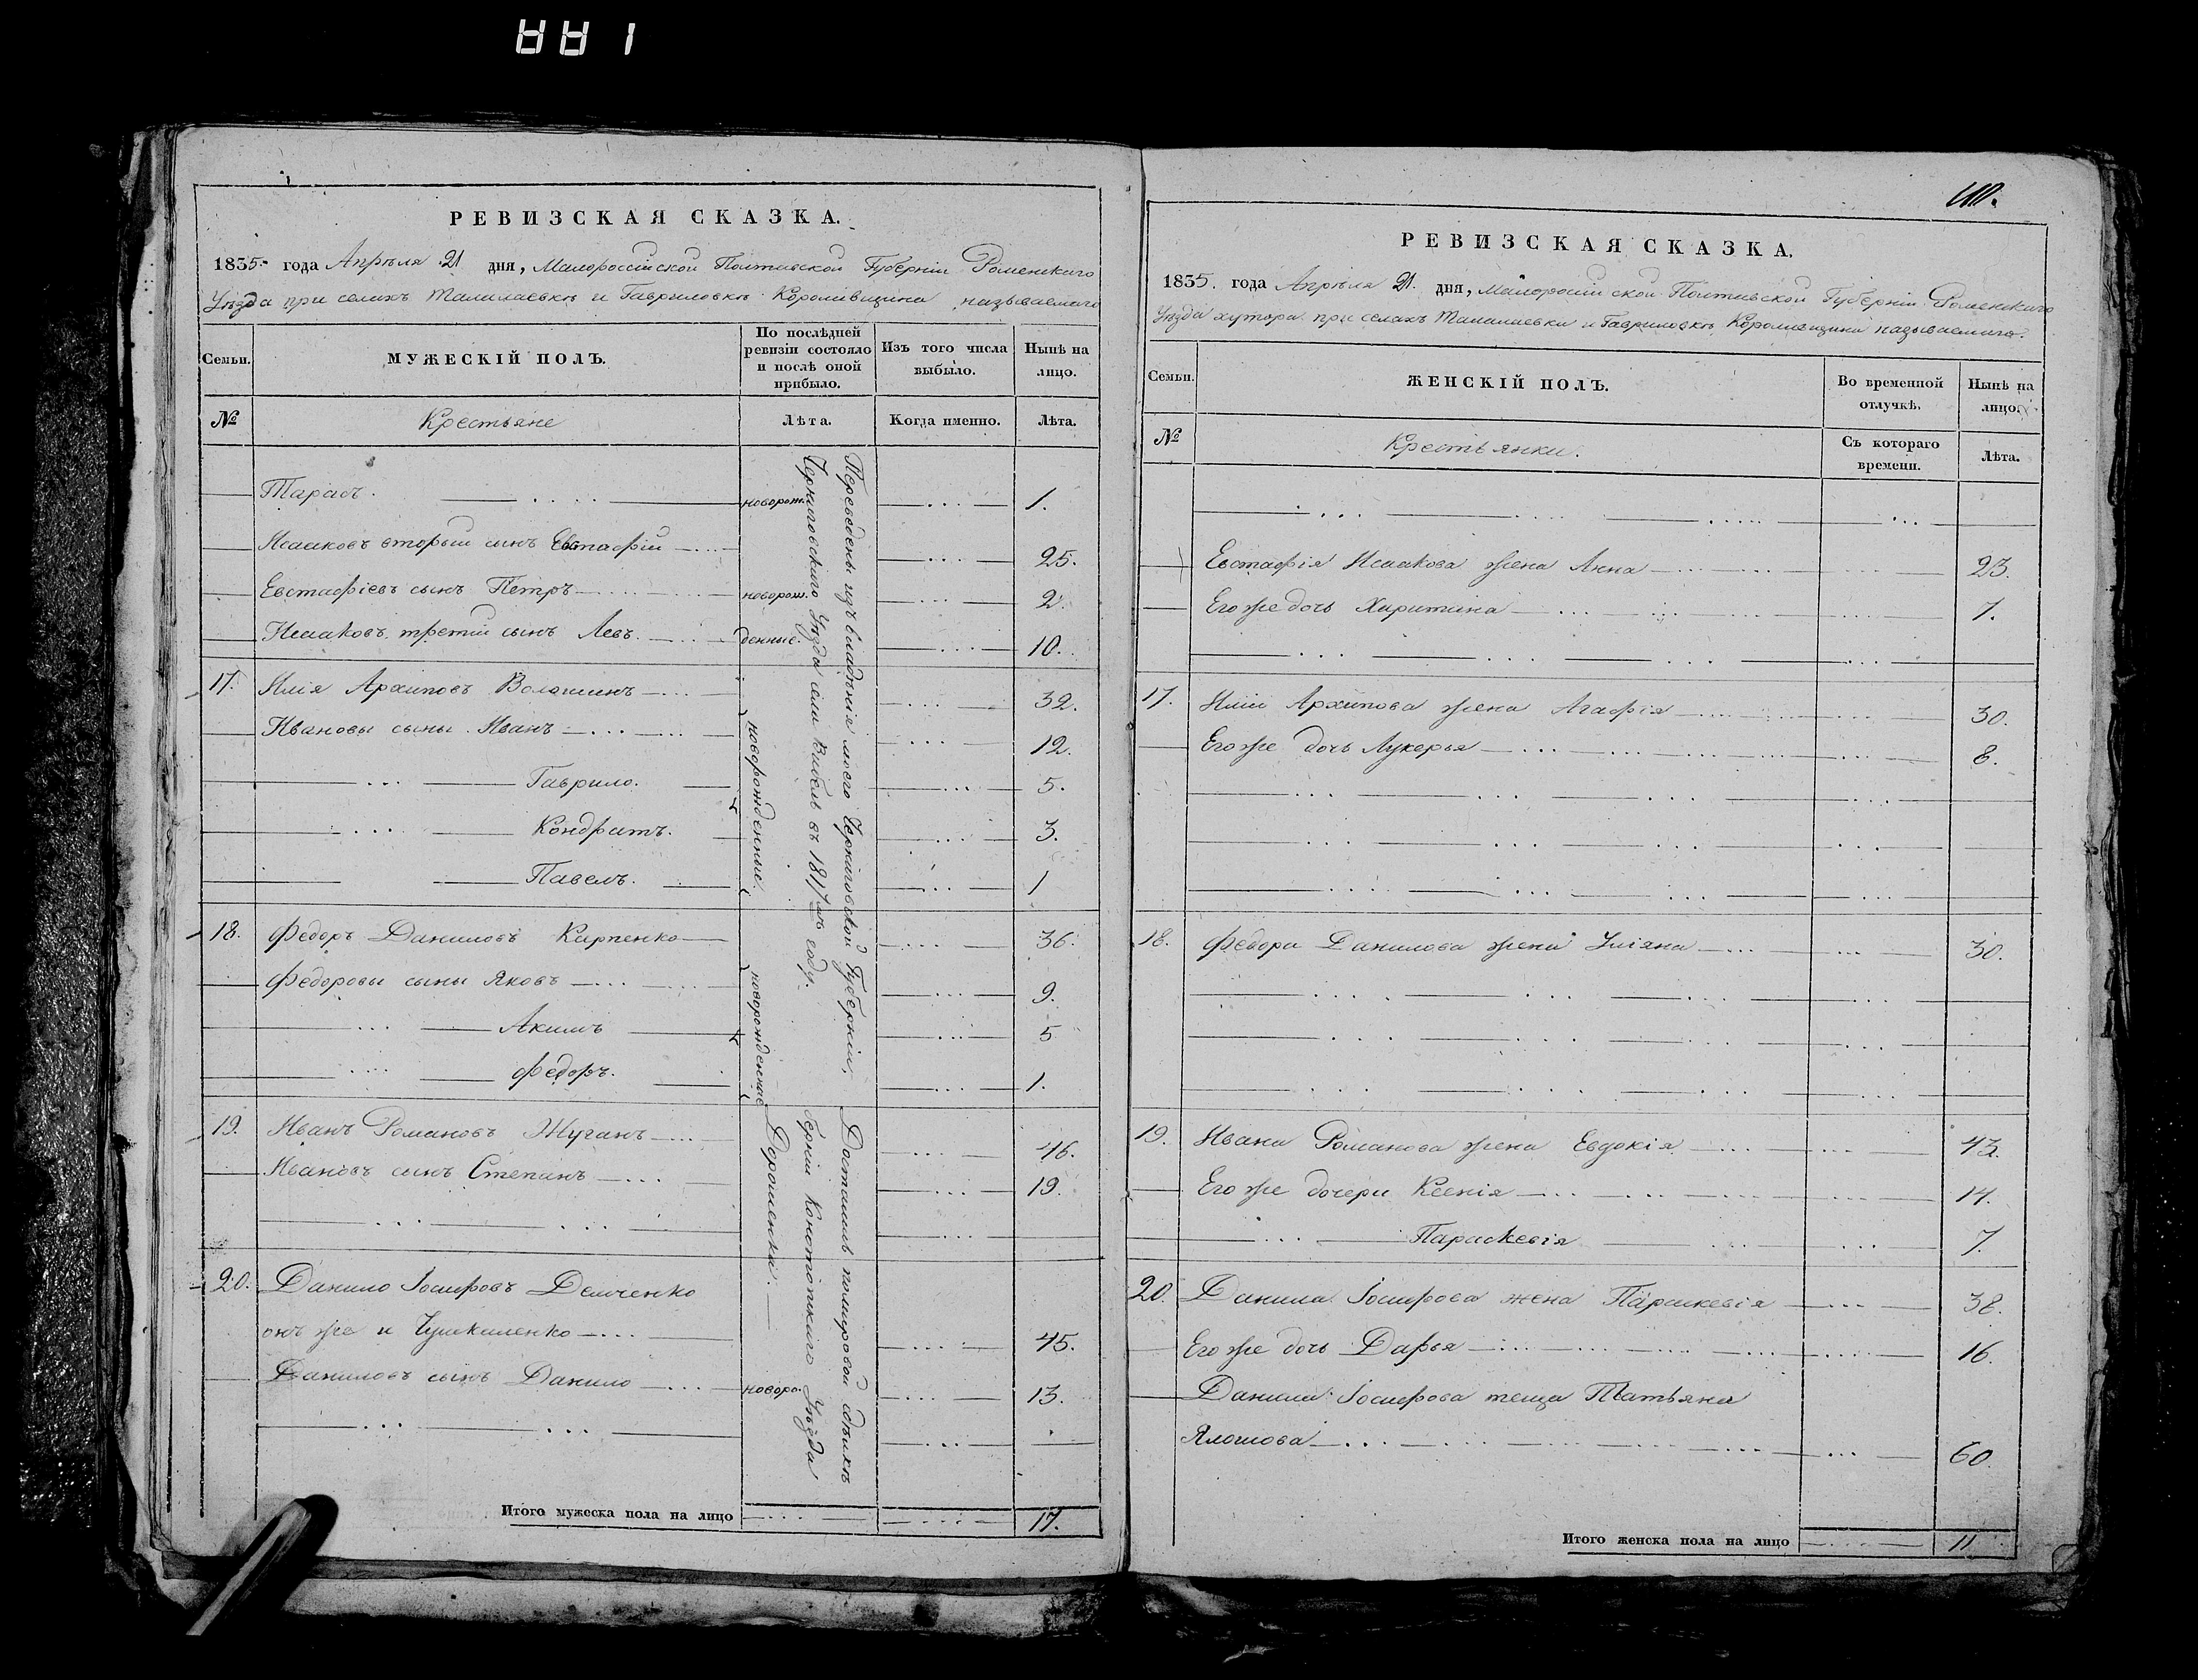 188 1
РЕВИЗСКАЯ СКАЗКА.
1835 года Апрѣля 21 дня, Малороссійской Полтавской Губерніи Роменского
Уѣзда при селахъ Талалаевкѣ и Гавриловкѣ Королівщина называемаго
Семьи.
МУЖЕСКІЙ ПОЛЪ.
По послѣдней ревизіи состояло и послѣ оной прибыло.
Изъ того числа выбыло.
Нынѣ на лицо.
№ Крестьяне Лѣта. Когда именно. Лѣта.
Переведены изъ владѣнія моего Черниговской Губерніи,
Черниговского Уѣзда села в 1817мъ году.
Тарасъ. новорож. 1.
Исааковъ вторый сынъ Евстафій 25.
Евстафіевъ сынъ Петръ новорож. 2.
Исааковъ третій сынъ Левъ. денные. 10.
17. Илія Архиповъ Волошинъ 32.
Ивановы сыны Иванъ новорожденные 12.
Гаврило. 5.
Кондратъ. 3.
Павелъ. 1
18. Федоръ Даниловъ Карпенко 36.
Федоровы сыны Яковъ новорожденные 9.
Акимъ 5
Федоръ. 1.
Достались по
берніи Конотопского Уѣзда
Дорошенки.
19. Иванъ Романовъ Жуганъ 46.
Ивановъ сынъ Степанъ 19.
20. Данило Іосифовъ Демченко
онъ же и 45.
Даниловъ сынъ Данило новоро. 13.
Итого мужеска пола на лицо 17.
РЕВИЗСКАЯ СКАЗКА.
1835. года Апрѣля 21. дня, Малоросійской Полтавской Губерніи Роменского
Уѣзда хутора при селахъ Талалаевки и Гавриловкѣ Королівщина называемаго.
Семьи.
ЖЕНСКІЙ ПОЛЪ.
Во временной отлучкѣ.
Нынѣ на лицо.
№ Крестьянки. Съ котораго времени. Лѣта.
Евстафія Исаакова жена Анна 23.
Его же дочь Харитина 1.
17. Иліи Архипова жена Агафія 30.
Его же дочь Лукерья 8.
18. Федора Данилова жена Уліяна 30.
19. Ивана Романова жена Евдокія 43.
Его же дочери Ксенія 14.
Параскевія 7.
20. Данила Іосифова жена Параскевія 38.
Его же дочь Дарья 16.
Данила Іосифова теща Татьяна
60.
Итого женска пола на лицо 11